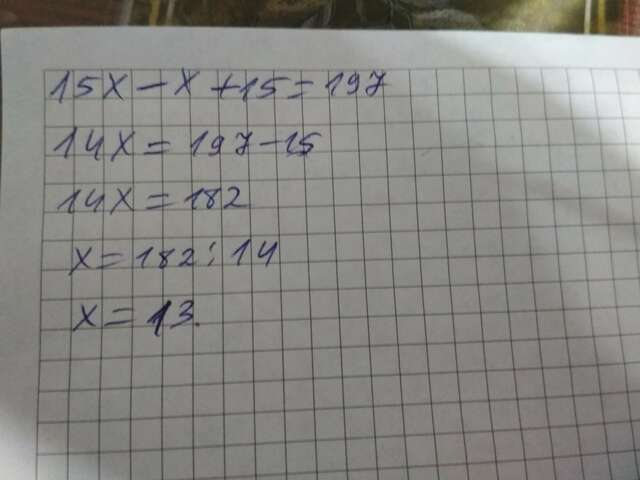 15x - x + 15 = 197
14x = 197 - 15
14x = 182
x = 182 : 14
x = 13.